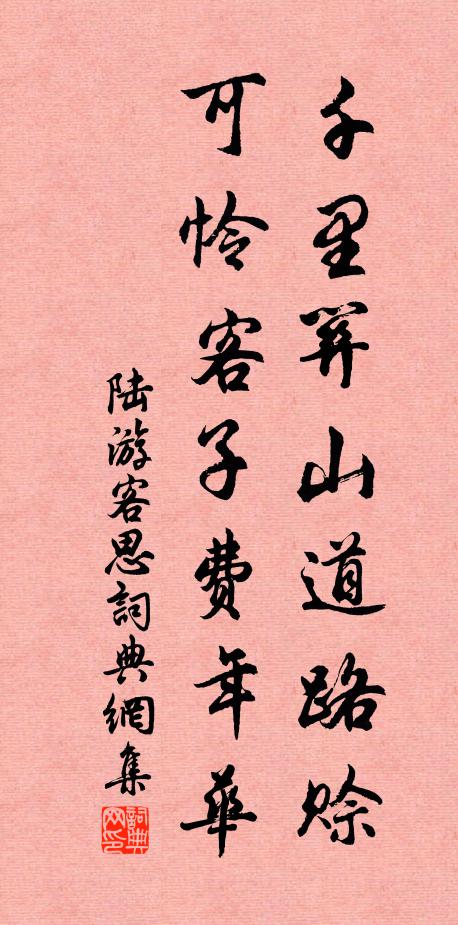 千里关山道路赊
可怜客子费年华
陆游客思詞典網集
詞典网印